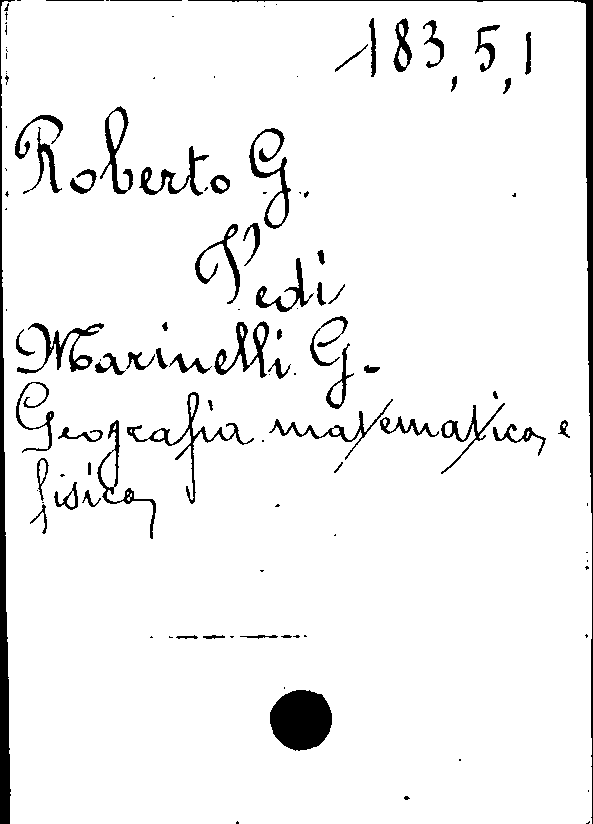 183,5,1
Roberto G.
Vedi
Marinelli G.
Geografia matematica, e
fisica,